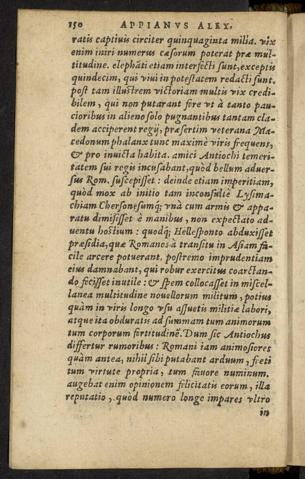 150 APPIANVS ALEX.
ratis captiuis circiter quinquaginta milia. vix
enim iniri numerus cæsorum poterat præ mul-
titudine. elephāti etiam interfecti sunt, exceptis
quindecim, qui viui in potestatem redacti sunt.
post tam illustrem victoriam multis vix credi-
bilem, qui non putarant fore vt à tanto pau-
cioribus in alieno solo pugnantibus tantam cla-
dem acciperent regij, præsertim veterana Ma-
cedonum phalanx tunc maximè viris frequens,
& pro inuicta habita. amici Antiochi temeri-
tatem sui regis incusabant, quòd bellum aduer-
sus Rom. suscepisset: deinde etiam imperitiam,
quòd mox ab initio tam inconsultè Lysima-
chiam Chersonesumq; vnà cum armis & appa-
ratu dimisisset è manibus, non expectato ad-
uentu hostium: quodq; Hellesponto abduxisset
præsidia, quæ Romanos à transitu in Asiam fa-
cile arcere potuerant. postremo imprudentiam
eius damnabant, qui robur exercitus coarctan-
do fecisset inutile: & spem collocasset in miscel-
lanea multitudine nouellorum militum, potius
quàm in viris longo vsu assuetis militiæ labori,
atque ita obduratis ad summam tum animorum
tum corporum fortitudinē. Dum sic Antiochus
differtur rumoribus: Romani iam animosiores
quàm antea, nihil sibi putabant arduum, freti
tum virtute propria, tum fauore numinum.
augebat enim opinionem felicitatis eorum, illa
reputatio, quòd numero longe impares vltro
in